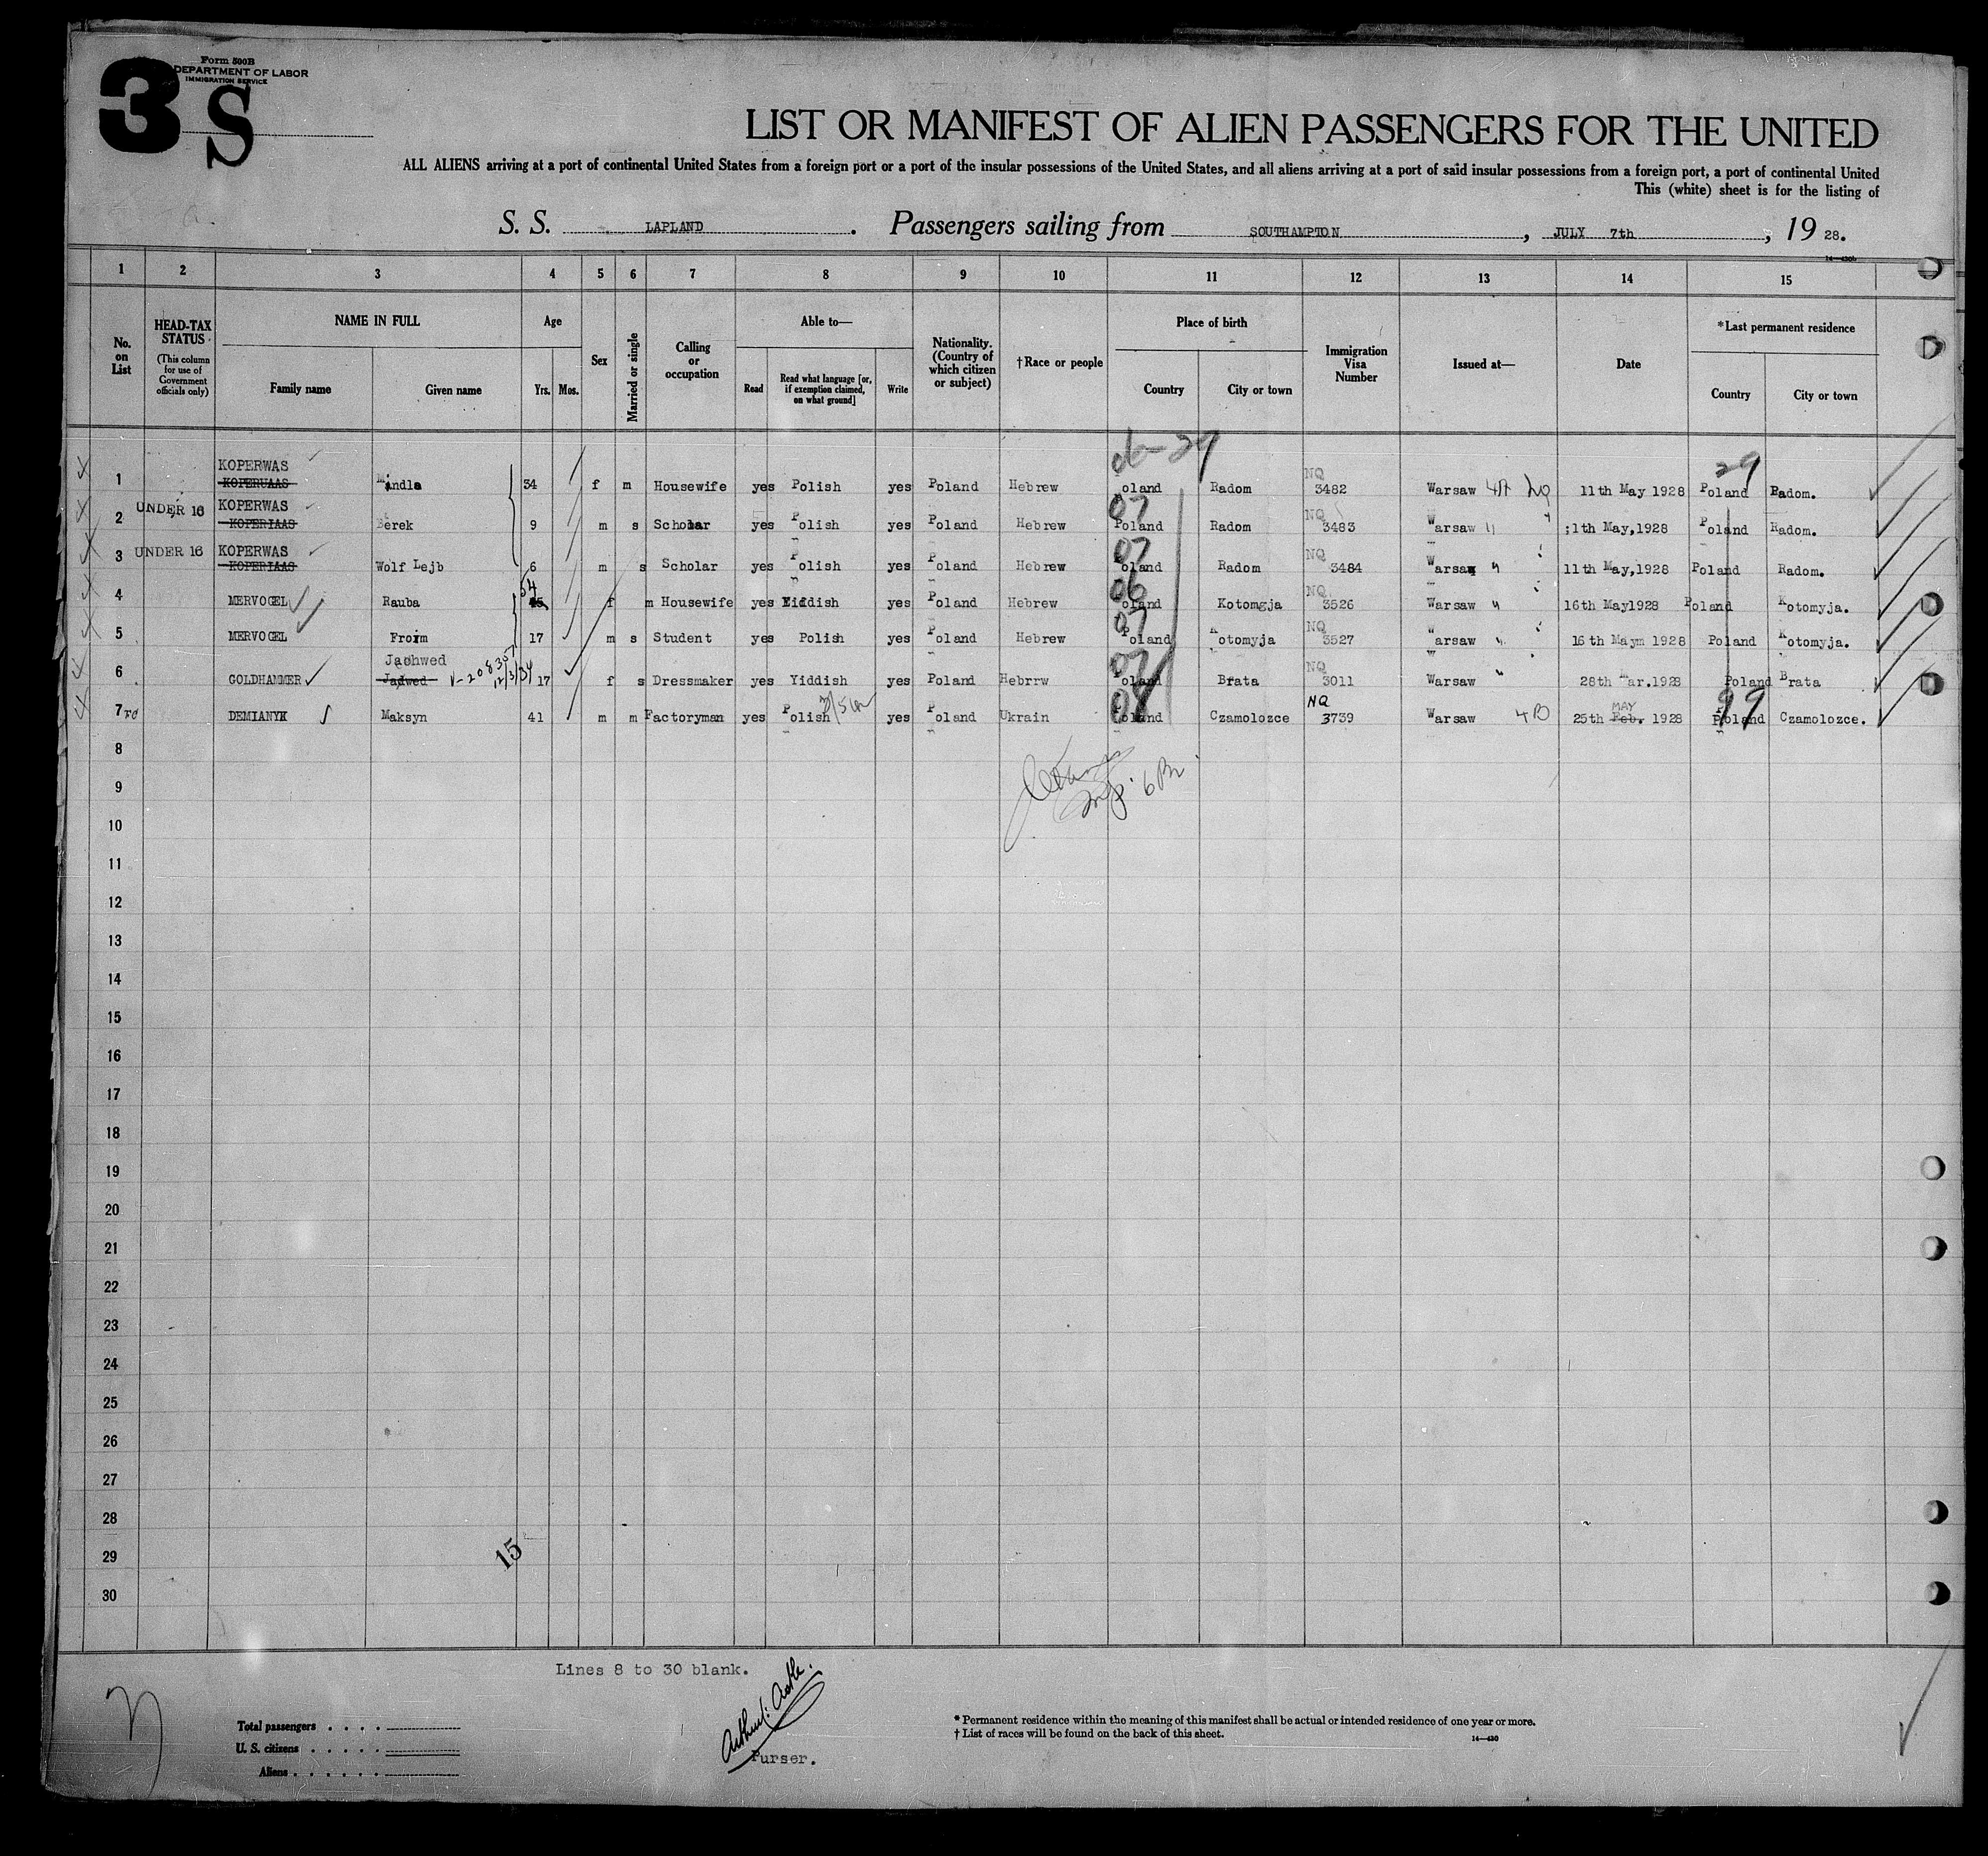 Form 500B
DEPARTMENT OF LABOR
IMMIGRATION SERVICE
3 S
LIST OR MANIFEST OF ALIEN PASSENGERS FOR THE UNITED
ALL ALIENS arriving at a port of continental United States from a foreign port or a port of the insular possessions of the United States, and all aliens arriving at a port of said insular possessions from a foreign port, a port of continental United
This (white) sheet is for the listing of
S. S. LAPLAND . Passengers sailing from SOUTHAMPTON , JULY 7th , 19 28.
14—430b
1 2 3 4 5 6 7 8 9 10 11 12 13 14 15
No. on List
HEAD-TAX STATUS (This column for use of Government officials only)
NAME IN FULL
Family name Given name
Age
Yrs. Mos.
Sex
Married or single
Calling or occupation
Able to—
Read
Read what language [or, if exemption claimed, on what ground]
Write
Nationality. (Country of which citizen or subject)
†Race or people
Place of birth
Country City or town
Immigration Visa Number
Issued at—
Date
*Last permanent residence
Country City or town
06-29 29
KOPERWAS NQ
1 KOPERUAAS Mindla 34 f m Housewife yes Polish yes Poland Hebrew oland Radom 3482 Warsaw 11th May 1928 Poland Radom.
UNDER 16 KOPERWAS 07 NQ
2 KOPERIAAS Berek 9 m s Scholar yes Polish yes Poland Hebrew Poland Radom 3483 Warsaw " ;1th May,1928 Poland Radom.
UNDER 16 KOPERWAS 07 NQ
3 KOPERIAAS Wolf Lejb 6 m s Scholar yes Polish yes Poland Hebrew Poland Radom 3484 Warsaw " 11th May,1928 Poland Radom.
54 06 NQ
4 MERVOGEL Rauba 45 f m Housewife yes Yiddish yes Poland Hebrew Poland Kotomgja 3526 Warsaw " 16th May1928 Poland Kotomyja.
07 NQ
5 MERVOGEL Froim 17 m s Student yes Polish yes Poland Hebrew Poland Kotomyja 3527 Warsaw " 16th Maym 1928 Poland Kotomyja.
Jachwed V-20835 12/3/34 07 NQ
6 GOLDHAMMER Jadwed 17 f s Dressmaker yes Yiddish yes Poland Hebrrw Poland Brata 3011 Warsaw " 28th Mar.1928 Poland Brata
08 NQ MAY 99
7 DEMIANYK Maksyn 41 m m Factoryman yes Polish yes Poland Ukrain Poland Czamolozce 3739 Warsaw 4B 25th Feb. 1928 Poland Czamolozce.
8
9
10
11
12
13
14
15
16
17
18
19
20
21
22
23
24
25
26
27
28
29
30
15
Lines 8 to 30 blank.
Total passengers . . . .
U. S. citizens . . . . .
Aliens . . . . . .
Purser.
* Permanent residence within the meaning of this manifest shall be actual or intended residence of one year or more.
† List of races will be found on the back of this sheet.
14—430